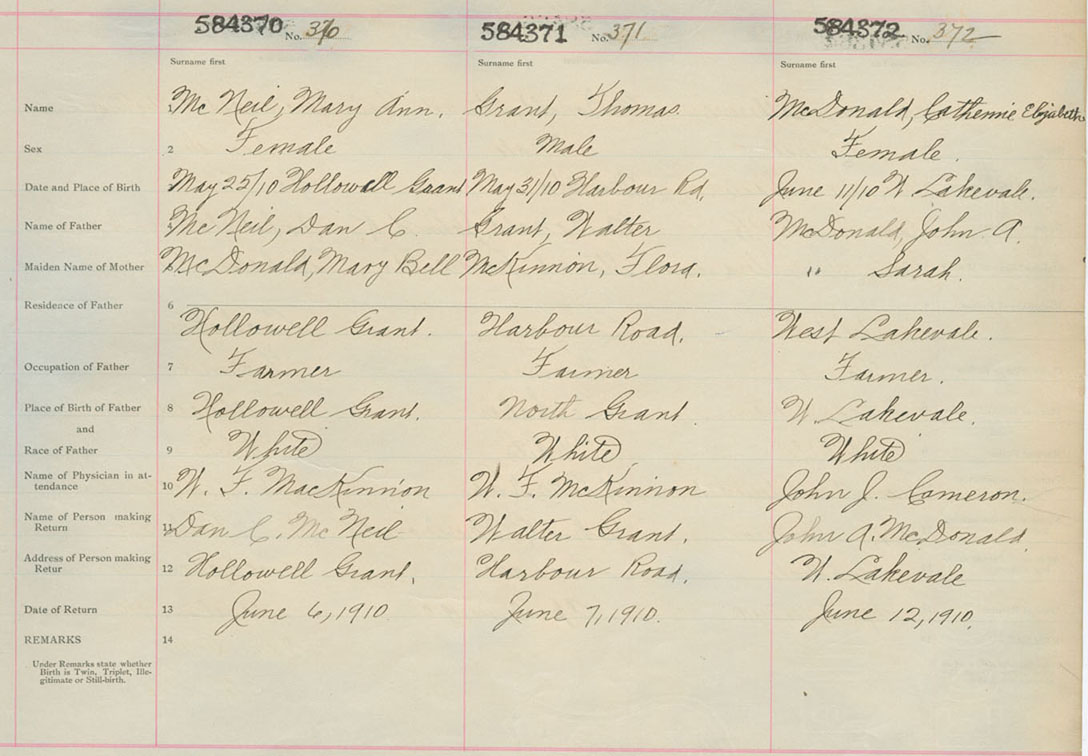 584370 No. 370 584371 No. 371 584372 No. 372
Surname first Surname first Surname first
Name 1 Mc Neil, Mary Ann. Grant, Thomas. McDonald, Catherine Elizabeth
Sex 2 Female Male Female.
Date and Place of Birth May 25/10 Hollowell Grant May 31/10 Harbour Rd. June 11/10 W Lakevale.
Name of Father Mc Neil, Dan C. Grant, Walter McDonald, John A.
Maiden Name of Mother McDonald, Mary Bell McKinnon, Flora. " Sarah.
Residence of Father 6
Hollowell Grant. Harbour Road. West Lakevale.
Occupation of Father 7 Farmer Farmer Farmer.
Place of Birth of Father 8 Hollowell Grant. North Grant W. Lakevale.
and
Race of Father 9 White White White
Name of Physician in at-
tendance 10 W. F. MacKinnon W. F. McKinnon John J. Cameron.
Name of Person making
Return 11 Dan C. Mc Neil Walter Grant. John A. McDonald.
Address of Person making
Retur 12 Hollowell Grant. Harbour Road. W. Lakevale
Date of Return 13 June 6, 1910 June 7, 1910. June 12, 1910.
REMARKS 14
Under Remarks state whether
Birth is Twin, Triplet, Ille-
gitimate or Still-birth.